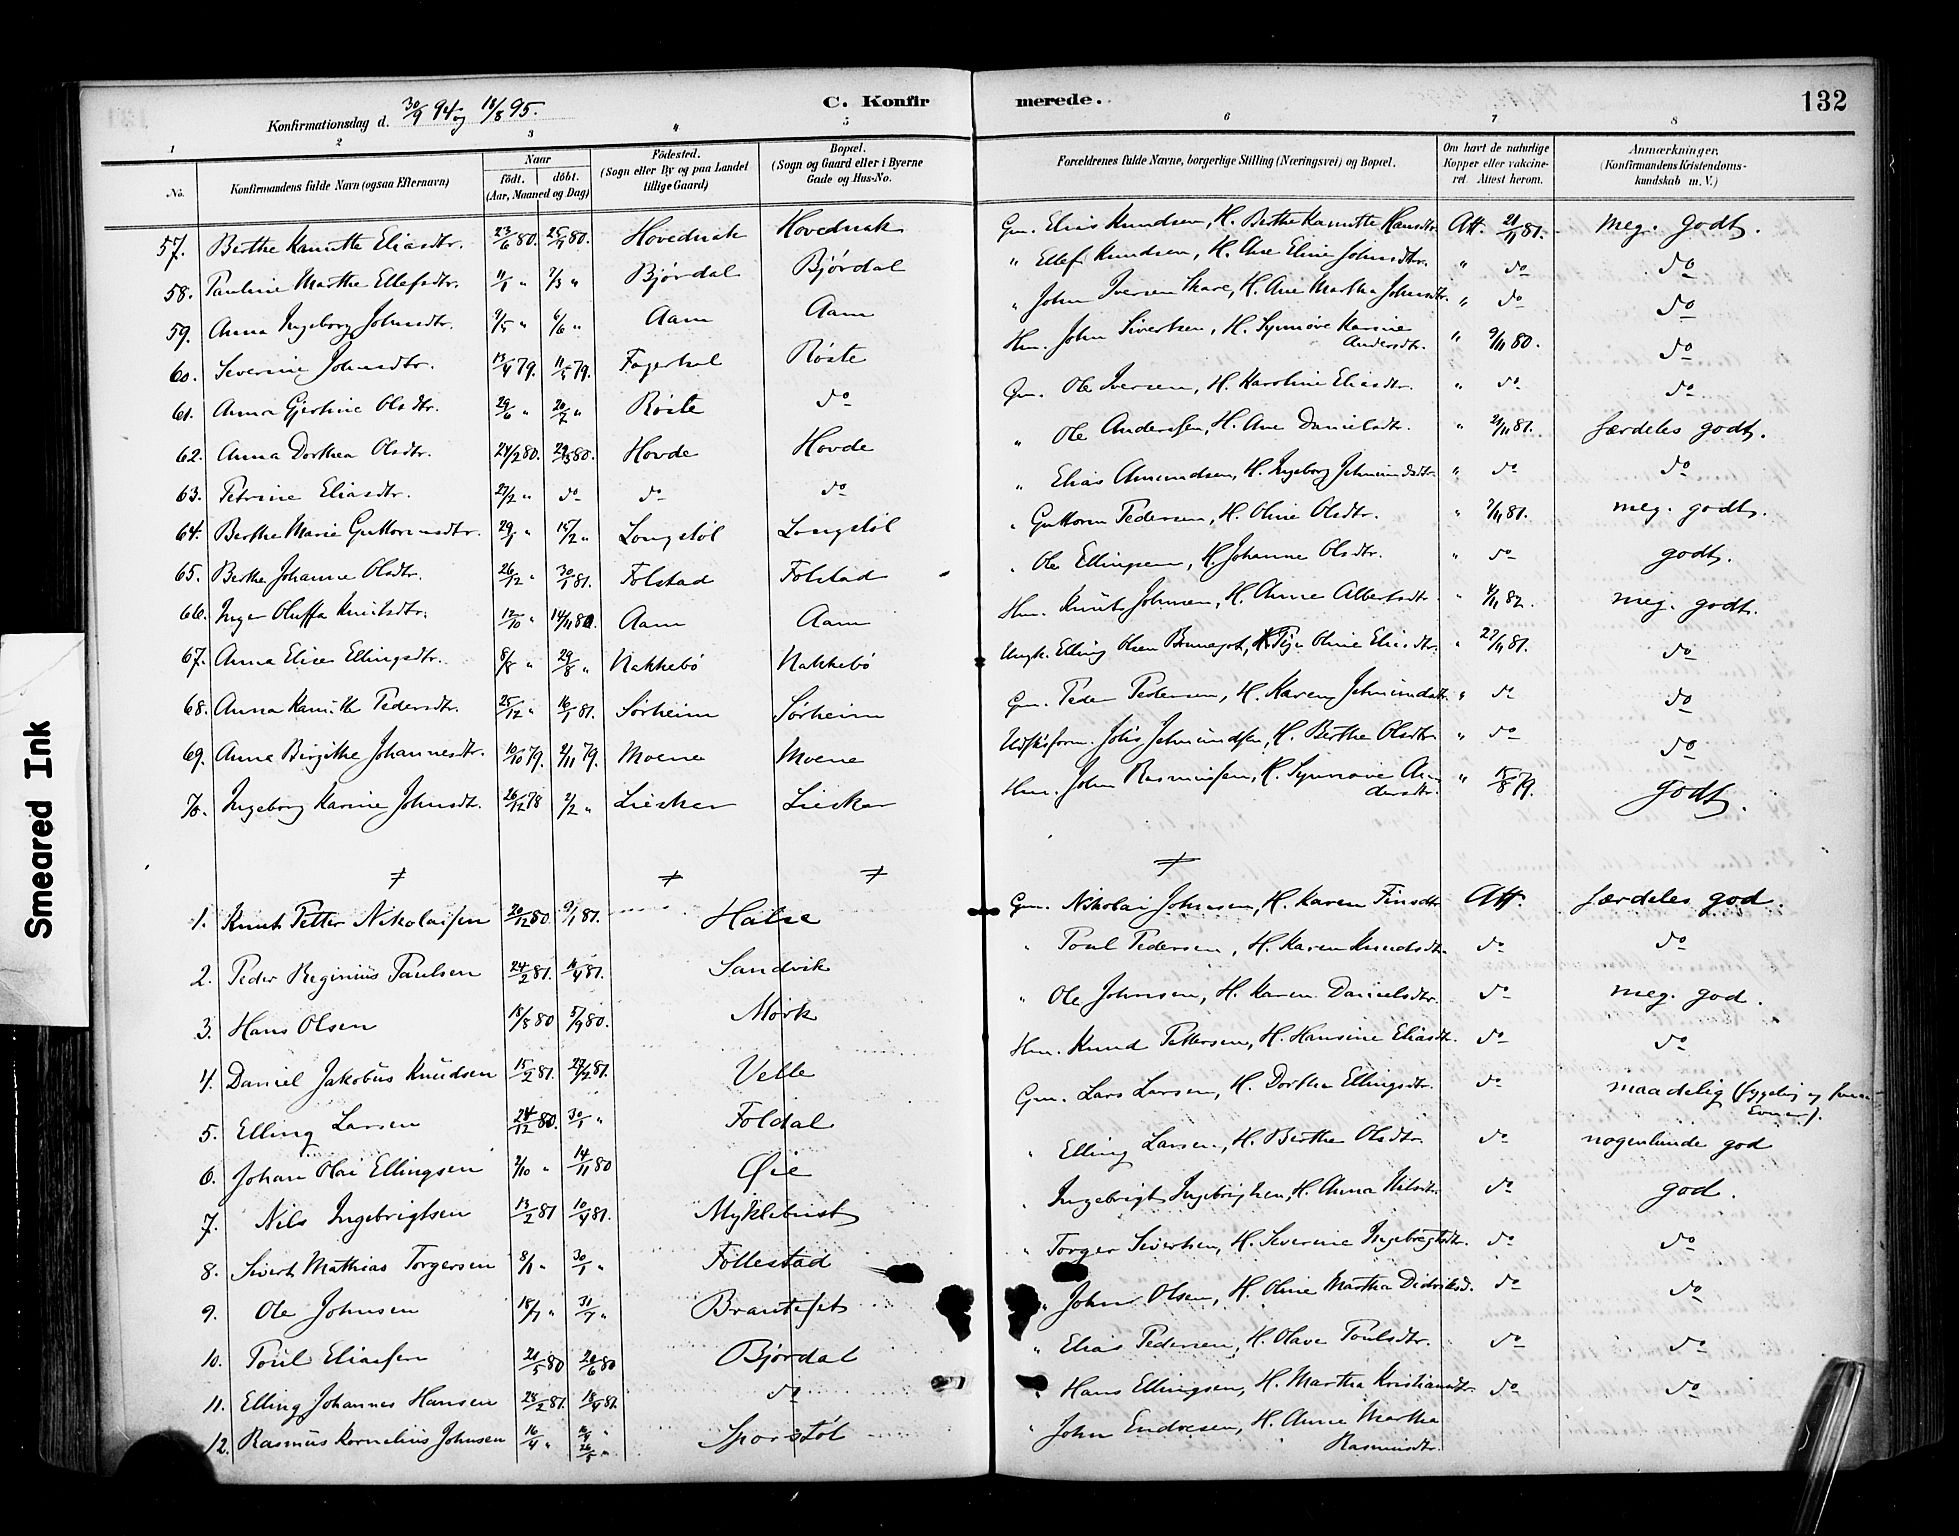 Smeared Ink
132
C. Konfirmerede.
Konfirmationsdag d. 30/9 94 og 18/8 95.
1 2 3 4 5 6 7 8
No. Konfirmandens fulde Navn (ogsaa Efternavn) Naar födt. döbt. (Aar, Maaned og Dag) Födested. (Sogn eller By og paa Landet tillige Gaard) Bopæl. (Sogn og Gaard eller i Byerne Gade og Hus-No. Forældrenes fulde Navne, borgerlige Stilling (Næringsvei) og Bopæl. Om havt de naturlige Kopper eller vakcineret. Attest herom. Anmærkninger. (Konfirmandens Kristendomskundskab m. V.)
57. Berthe Kanutte Eliasdtr. 23/6 80. 25/7 80. Hovednak Hovednak Gm. Elias Knudsen, H. Berthe Kanutte Hansdtr. Att. 21/11 81. Meg. godt.
58. Pauline Marthe Ellefsdtr. 11/1 " 7/3 " Bjørdal Bjørdal " Ellef Knudsen, H. Ane Eline Johnsdtr. " do do
59. Anna Ingeborg Johnsdtr. 9/5 " 6/6 " Aam Aam " John Iversen Skare, H. Ane Martha Johnsdtr. " do do
60. Severine Johnsdtr. 13/4 79. 11/5 79. Fagerhol Røste Hm. John Sivertsen, H. Synnøve Karine Andersdtr. " 9/11 80. do
61. Anna Gjertine Olsdtr. 29/6 " 20/7 " Røste do Gm. Ole Iversen, H. Karoline Eliasdtr. " do do
62. Anna Dorthea Olsdtr. 24/2 80. 29/3 80. Hovde Hovde " Ole Andersen, H. Ane Danielsdtr. " 21/11 81. særdeles godt.
63. Petrine Eliasdtr. 27/2 " do do do " Elias Amundsen, H. Ingeborg Johnsdtr. " do do
64. Berthe Marie Guttormsdtr. 29/1 " 15/2 " Longstöl Longstöl " Guttorm Pedersen, H. Oline Olsdtr. " 7/11 81. meg. godt.
65. Berthe Johanne Olsdtr. 26/12 " 30/1 81. Folstad Folstad " Ole Ellingsen, H. Johanne Olsdtr. " do godt.
66. Inger Oluffa Knutsdtr. 12/10 " 14/11 80. Aam Aam Hm. Knut Johnsen, H. Anne Albertsdtr. " 4/11 82. meg. godt.
67. Anna Elise Ellingsdtr. 8/8 " 29/8 " Nakkebö Nakkebö Ungk. Elling Olsen, Pige Oline Eliasdtr. " 27/11 81. do
68. Anna Kanutte Pedersdtr. 25/12 " 16/1 81. Sørheim Sørheim Gm. Peder Pedersen, H. Karen " do do
69. Anne Birgithe Johannesdtr. 10/10 79. 2/11 79. Moene Moene H. Berthe Olsdtr. " do do
70. Ingeborg Karine Johnsdtr. 26/12 78 2/2 " Liesker Liesker Hm. John Rasmussen, H. Synnøve Andersdtr. " 15/8 79. godt.
1. Knut Petter Nikolaisen 20/12 80. 9/1 81. Halse Gm. Nikolai Johnsen, H. Karen Finsdtr. Att. særdeles god.
2. Peder Reginius Paulsen 24/2 81. 16/4 81. Sandvik " Poul Pedersen, H. Karen Knudsdtr. do do
3. Hans Olsen 18/8 80 5/9 80. Mørk " Ole Johnsen, H. Karen Danielsdtr. do meg. god.
4. Daniel Jakobus Knudsen 15/2 81. 27/2 81. Velle Hm. Knud Pettersen, H. Hansine Eliasdtr. do do
5. Elling Larsen 24/12 80. 30/1 " Foldal Gm. Lars Larsen, H. Dorthea Ellingsdtr. do maadelig
6. Johan Olai Ellingsen 2/10 " 14/11 80 Øie " Elling Larsen, H. Berthe Olsdtr. do nogenlunde god
7. Nils Ingebrigtsen 13/2 81 10/4 81. Myklebust " Ingebrigt Ingebrigtsen, H. Anna Nilsdtr. do god.
8. Sivert Mathias Torgersen 8/1 " 30/1 " Follestad " Torger Sivertsen, H. Severine Ingebregtsdtr. do do
9. Ole Johnsen 18/7 " 31/7 " Brauteset " John Olsen, H. Oline Martha Didriksd. do do
10. Poul Eliasen 21/5 80 20/6 80 Bjørdal " Elias Pedersen, H. Olave Poulsdtr. do do
11. Elling Johannes Hansen 28/2 81. 18/4 81 do " Hans Ellingsen, H. Martha Kristiansdtr. do do
12. Rasmus Kornelius Johnsen 16/4 " Sporstöl " John Endresen, H. Anne Martha Rasmusdtr.